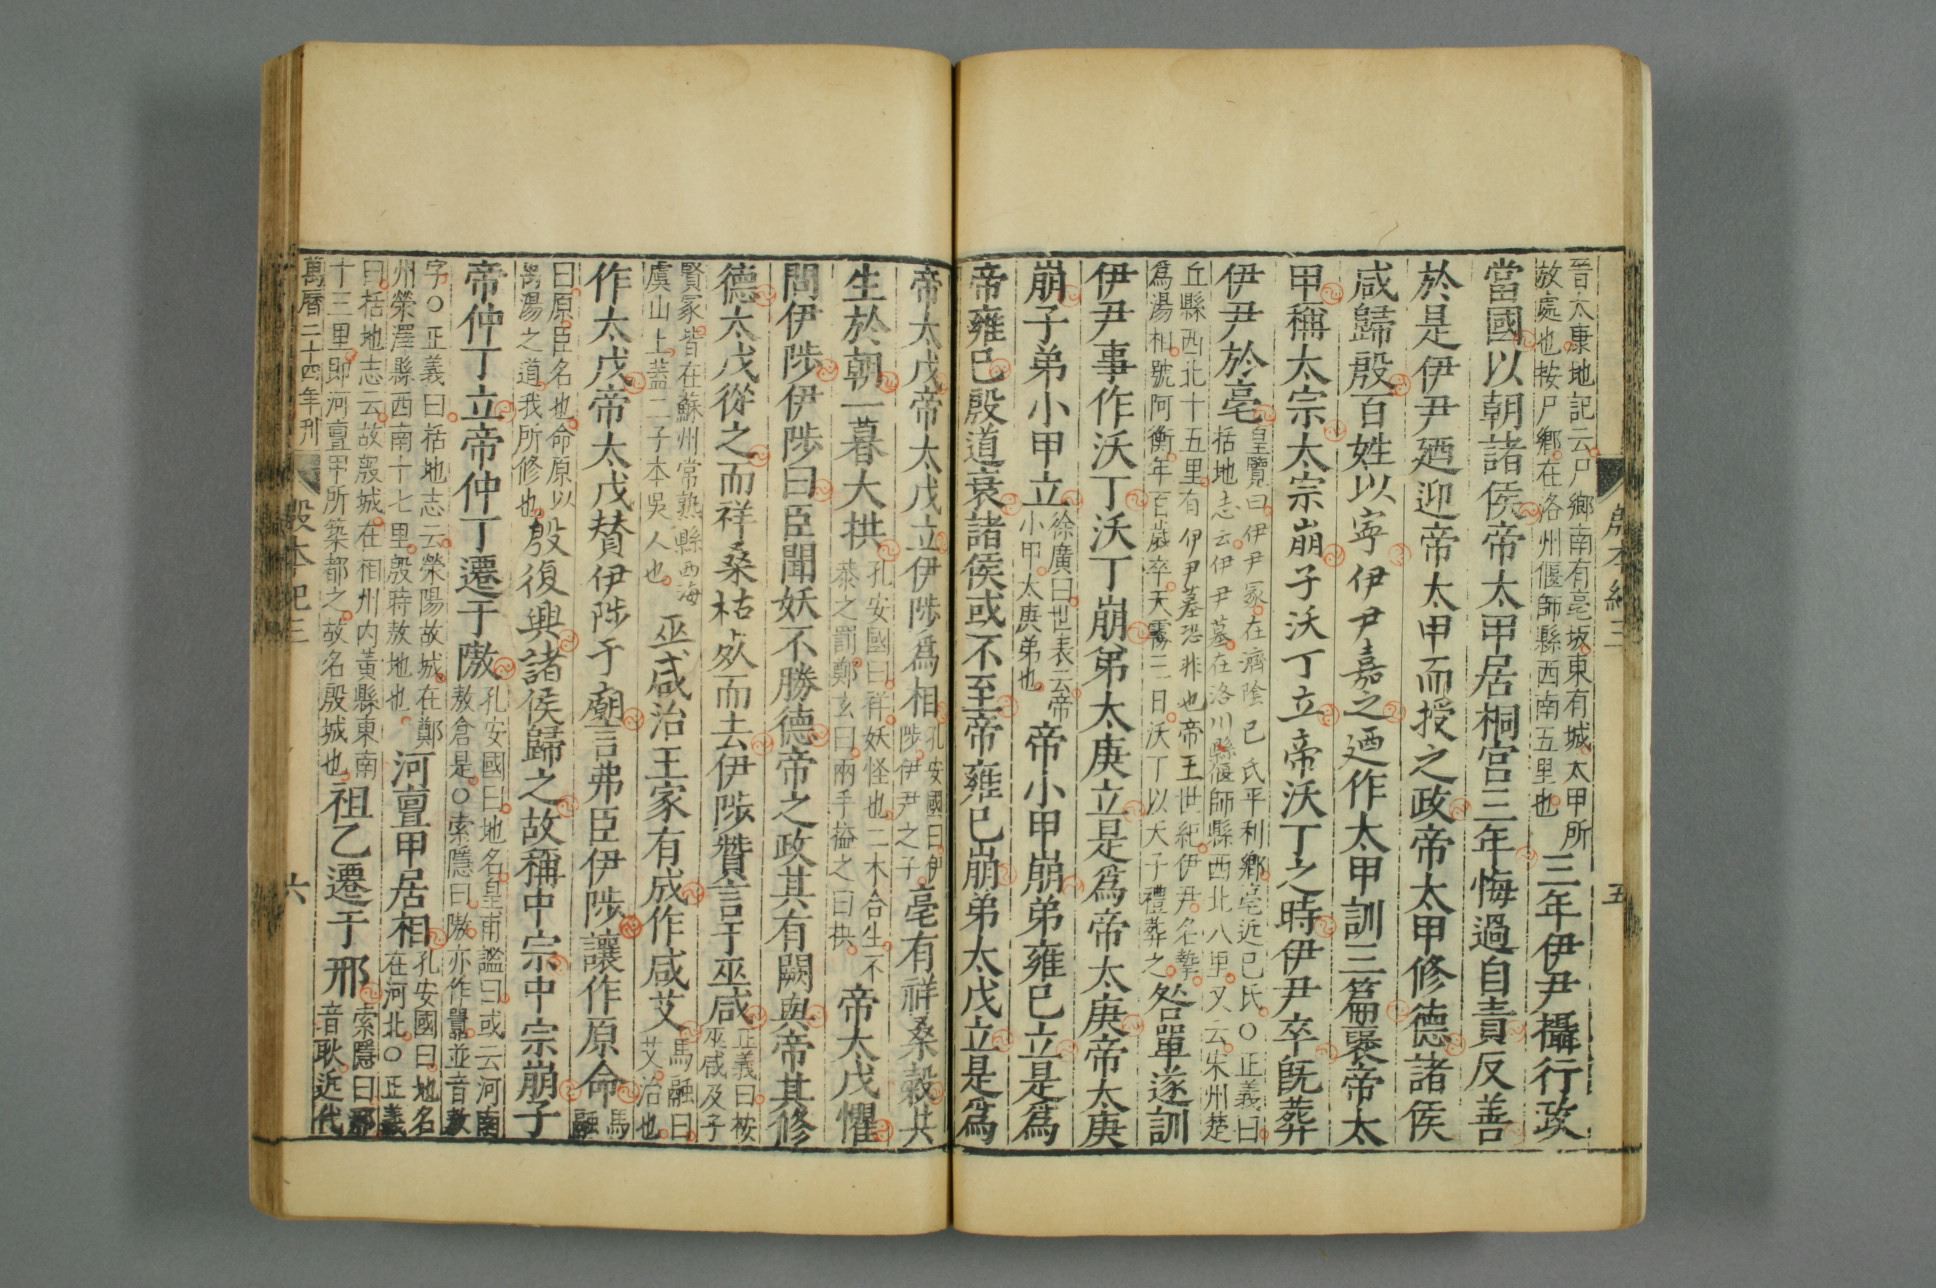 殷本紀三
五
晉太康地記云尸鄉南有亳坂東有城太甲所
放處也按尸鄉在洛州偃師縣西南五里也
三年伊尹攝行政
當國以朝諸侯帝太甲居桐宮三年悔過自責反善
於是伊尹廼迎帝太甲而授之政帝太甲修德諸侯
咸歸殷百姓以寧伊尹嘉之廼作太甲訓三篇襃帝太
甲稱太宗太宗崩子沃丁立帝沃丁之時伊尹卒旣葬
伊尹於亳
皇覽曰伊尹冢在濟陰己氏平利鄉亳近己氏○正義曰
括地志云伊尹墓在洛川縣偃師縣西北八里又云宋州楚
丘縣西北十五里有伊尹墓恐非也帝王世紀伊尹名摯
爲湯相號阿衡年百歲卒大霧三日沃丁以天子禮葬之
咎單遂訓
伊尹事作沃丁沃丁崩弟太庚立是爲帝太庚帝太庚
崩子弟小甲立
徐廣曰世表云帝
小甲太庚弟也
帝小甲崩弟雍已立是爲
帝雍已殷道衰諸侯或不至帝雍已崩弟太戊立是爲
帝太戊帝太戊立伊陟爲相
孔安國曰
陟伊尹之子
亳有祥桑榖共
生於朝一暮大拱
孔安國曰祥妖怪也二木合生不
恭之罰鄭玄曰兩手搤之曰拱
帝太戊懼
問伊陟伊陟曰臣聞妖不勝德帝之政其有闕與帝其修
德太戊從之而祥桑枯死而去伊陟贊言于巫咸
正義曰按
巫咸及子
賢冢皆在蘇州常熟縣西海
虞山上蓋二子本吳人也
巫咸治王家有成作咸艾
馬融曰
艾治也
作太戊帝太戊贊伊陟于廟言弗臣伊陟讓作原命
馬
融
曰原臣名也命原以
禹湯之道我所修也
殷復興諸侯歸之故稱中宗中宗崩子
帝仲丁立帝仲丁遷于隞
孔安國曰地名皇甫謐曰或云河南
敖倉是○索隱曰隞亦作囂並音敖
字○正義曰括地志云滎陽故城在鄭
州滎澤縣西南十七里殷時敖地也
河亶甲居相
孔安國曰地名
在河北○正義
曰括地志云故殷城在相州內黃縣東南
十三里即河亶甲所築都之故名殷城也
祖乙遷于邢
索隱曰邢
音耿近代
萬曆二十四年刊
殷本紀三
六